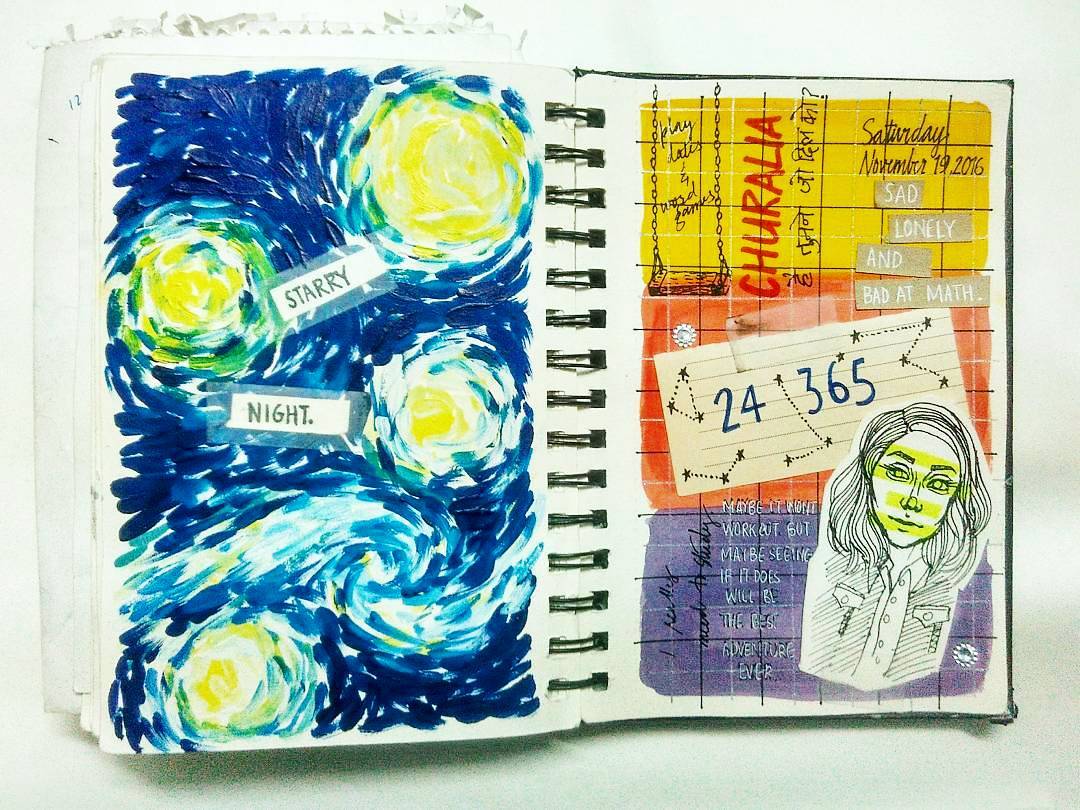 12
STARRY
NIGHT.
play
dates
&
word
games
CHURALIA
है तुमने जो दिल को?
Saturday
November 19, 2016
SAD
LONELY
AND
BAD AT MATH.
24 365
I really
need to study
MAYBE IT WONT
WORK OUT BUT
MAYBE SEEING
IF IT DOES
WILL BE
THE BEST
ADVENTURE
EVER..